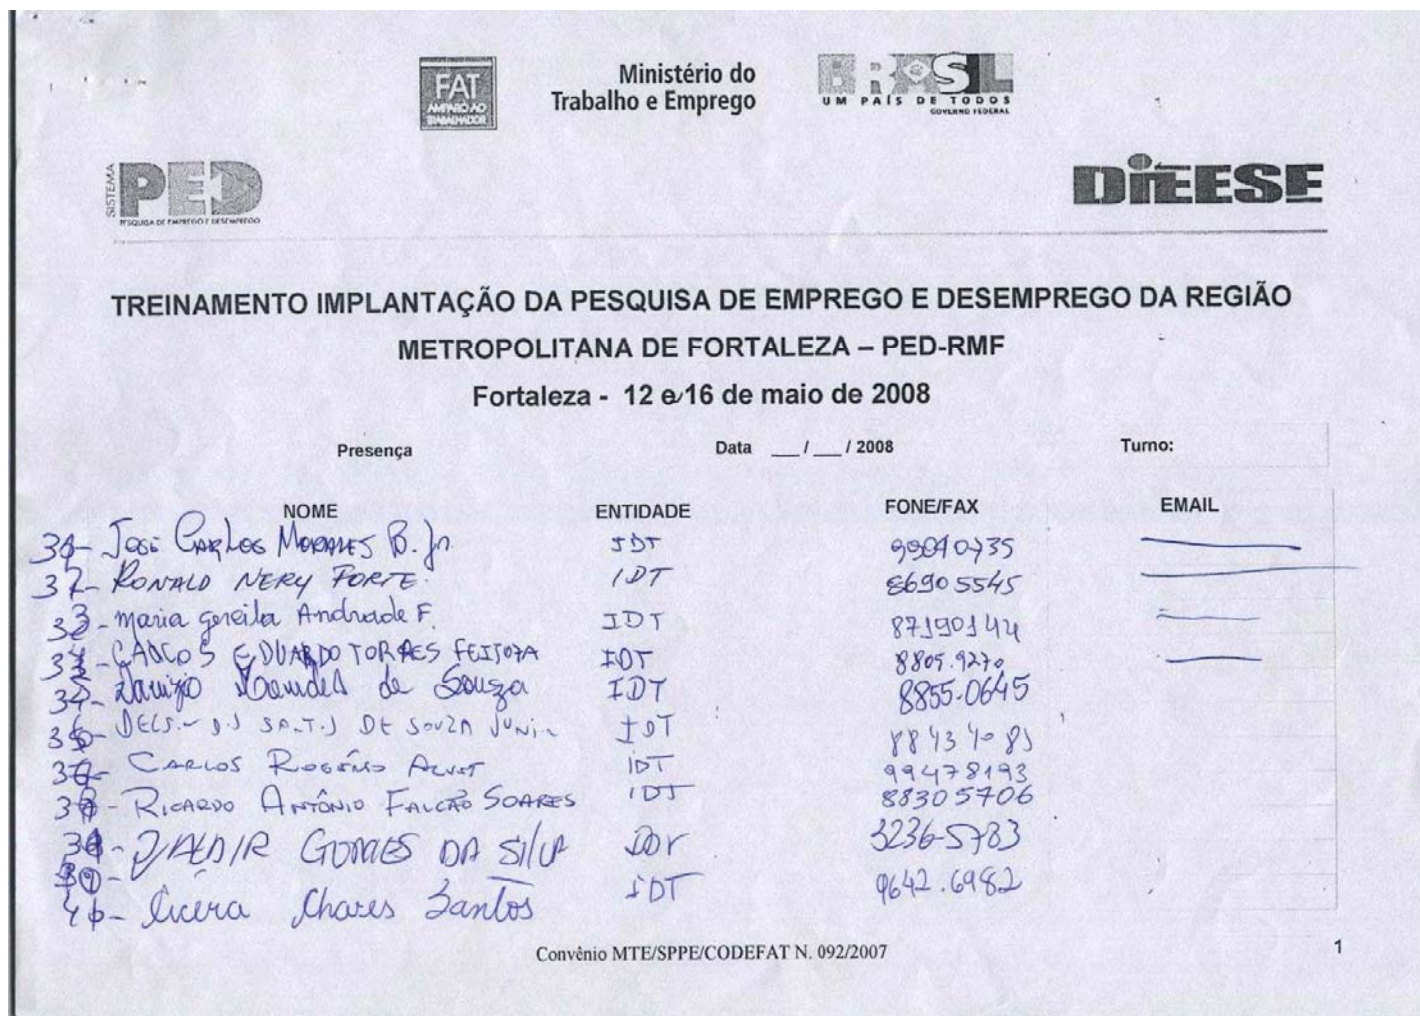 FAT
AMPARO AO
TRABALHADOR
Ministério do
Trabalho e Emprego
BRASIL
UM PAÍS DE TODOS
GOVERNO FEDERAL
SISTEMA
PED
PESQUISA DE EMPREGO E DESEMPREGO
DIEESE
TREINAMENTO IMPLANTAÇÃO DA PESQUISA DE EMPREGO E DESEMPREGO DA REGIÃO
METROPOLITANA DE FORTALEZA – PED-RMF
Fortaleza - 12 e 16 de maio de 2008
Presença Data __/__/ 2008 Turno:
NOME ENTIDADE FONE/FAX EMAIL
José Carlos Moraes B. Jr. IDT
RONALD NERY FORTE. IDT 86905545
maria gereila Andrade F. IDT 87190144
CARLOS EDUARDO TORRES FEITOZA IDT 8805.9270
Mendes de Souza IDT 8855-0645
DE SOUZA IDT
CARLOS ROGÉRIO IDT 99478193
RICARDO ANTÔNIO FALCÃO SOARES IDT 88305706
GOMES DA SILVA 3236-5783
IDT 9642.6982
Cicera Chaves Santos
Convênio MTE/SPPE/CODEFAT N. 092/2007
1